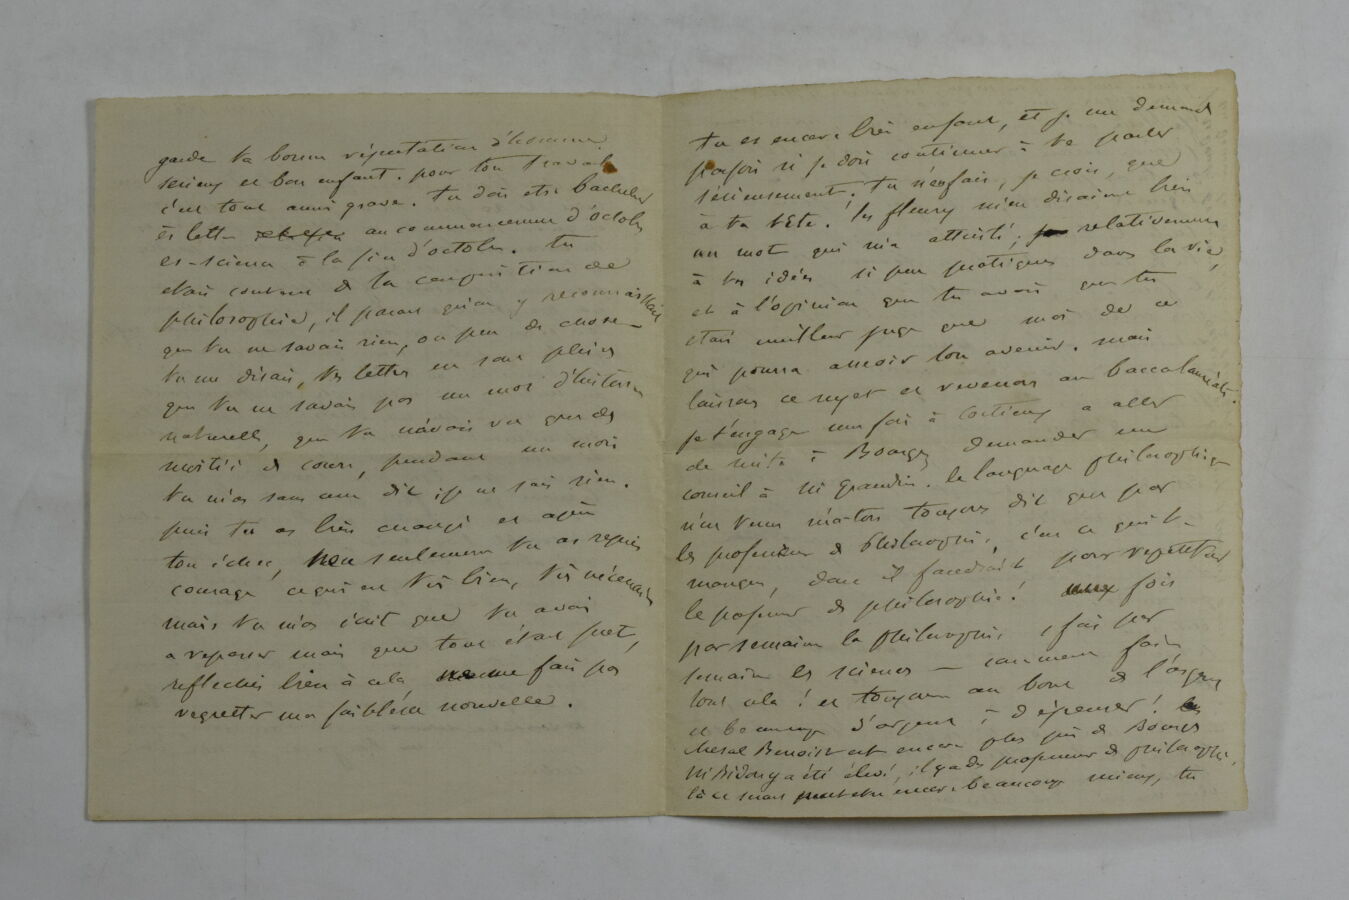 garde ta bonne réputation d'homme
sérieux et bon enfant. pour ton travail
c'est tout aussi grave. tu dois être bachelier
ès lettres au commencement d'octobre
es-science à la fin d'octobre. tu
étais content de ta composition de
philosophie, il parait qu'on y reconnaissait
que tu ne savais rien, ou peu de chose
tu me disais, tes lettres en sont pleines
que tu ne savais pas un mot d'histoire
naturelle, que tu n'avais vu que la
moitié du cours, pendant un mois
tu m'as sans cesse dit : je ne sais rien.
puis tu as bien changé et après
ton échec, non seulement tu as repris
courage ce qui est très bien, très nécessaire
mais tu m'as écrit que tu avais
à repasser mais que tout était prêt,
réfléchis bien à cela fais pas
regretter ma faiblesse nouvelle.
tu es encore très enfant, et je me demande
parfois si je dois continuer à te parler
sérieusement. tu n'en fais, je crois, que
à ta tête. les fleury m'en disaient bien
un mot qui m'a attristé ; relativement
à tes idées si peu pratiques dans la vie,
et à l'opinion que tu avais que tu
étais meilleur juge que moi de ce
qui pourra asseoir ton avenir. mais
laissons ce sujet et revenons au baccalauréat.
je t'engage une fois à aller
de suite à Bourges demander un
conseil à M grandin. le langage philosophique
m'a-t-on toujours dit que par
les professeurs de philosophie, c'est ce qui te
manque, donc il faudrait pour répétiteur
le professeur de philosophie ! fois
par semaine la philosophie, fois par
semaine les sciences — comment faire
tout cela ! et toujours au bout de l'argent
et beaucoup d'argent à dépenser !
Benoist est encore plus près de Bourges
M Bidon y a été élevé, il y a des professeurs de philosophie,
là ce serait peut-être encore beaucoup mieux, tu